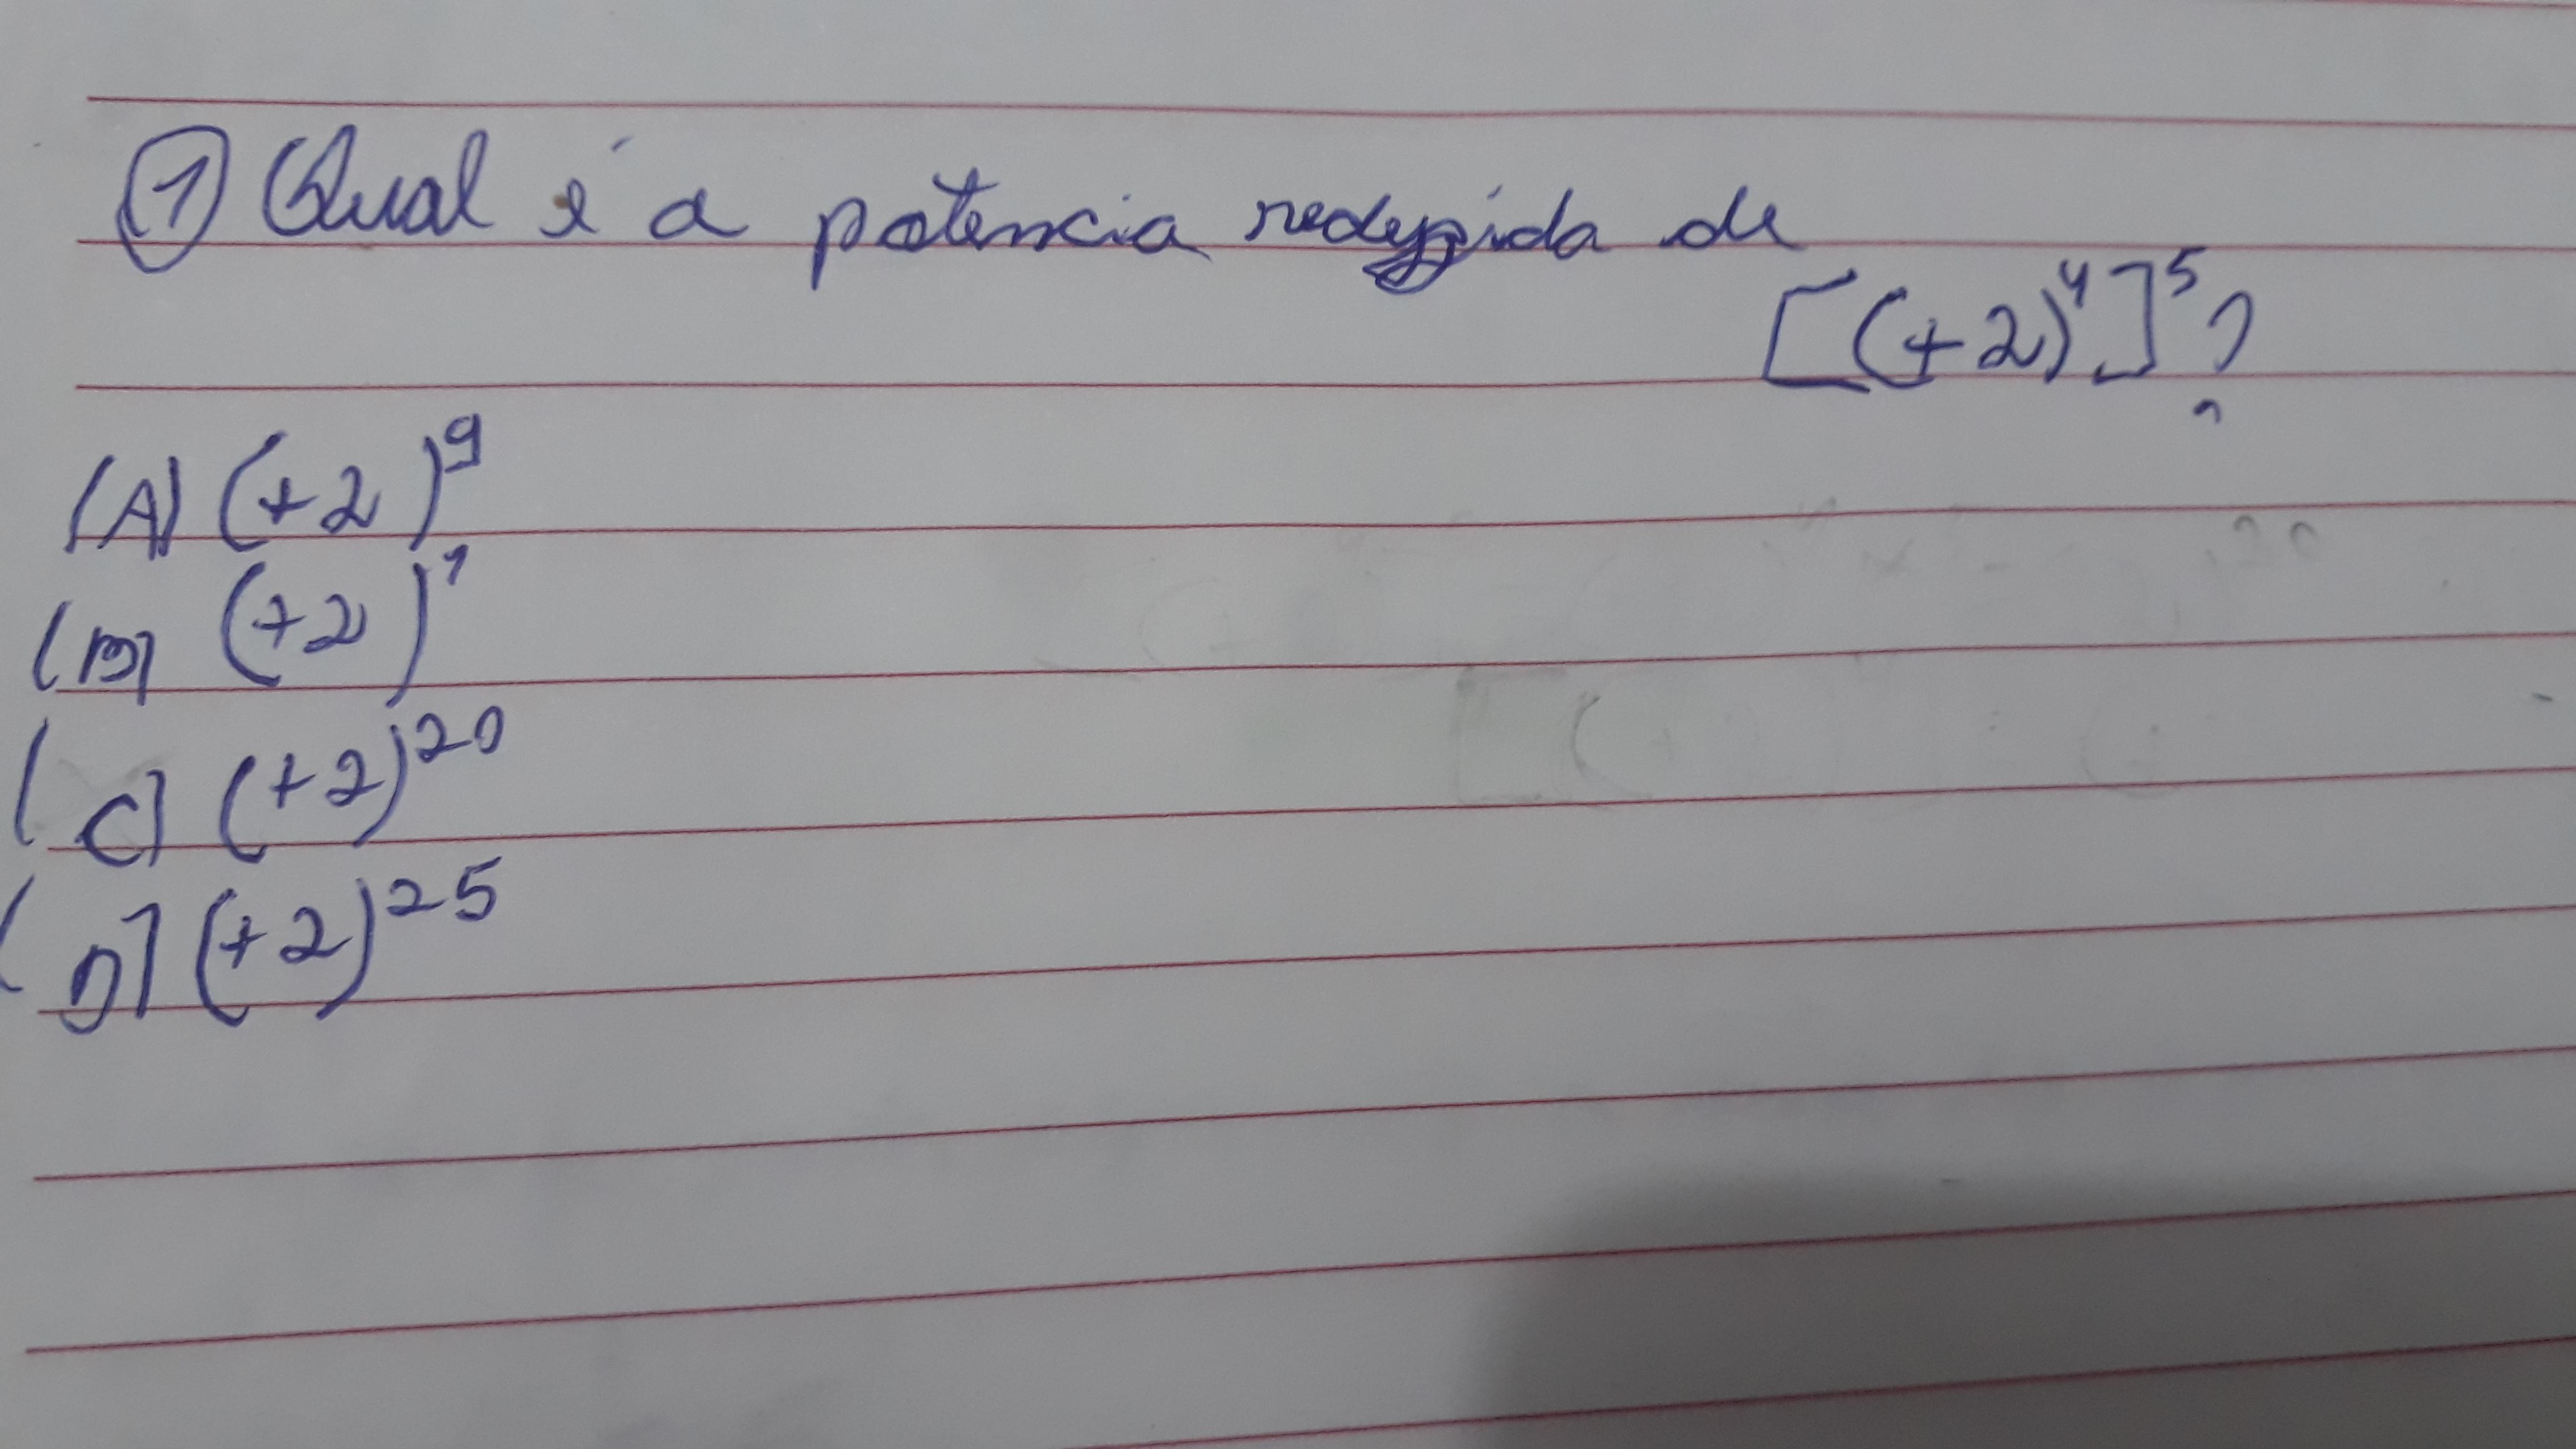 ① Qual é a potencia redyzida de
[(+2)⁴]⁵?
(A) (+2)⁹
(B) (+2)¹
(C) (+2)²⁰
(D) (+2)²⁵